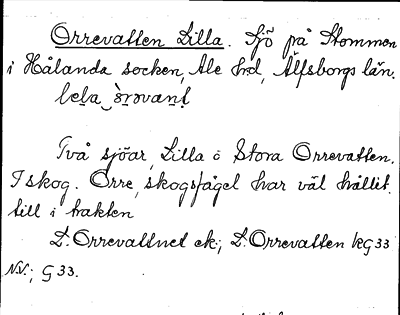 Orrevatten Lilla. Sjö på Stommen
i Hålanda socken, Ale hrd, Älfsborgs län.
Två sjöar, Lilla o Stora Orrevatten.
I skog. Orre, skogsfågel har väl hållit
till i trakten
L. Orrevattnet ek; L. Orrevatten kG33
NV.; G33.